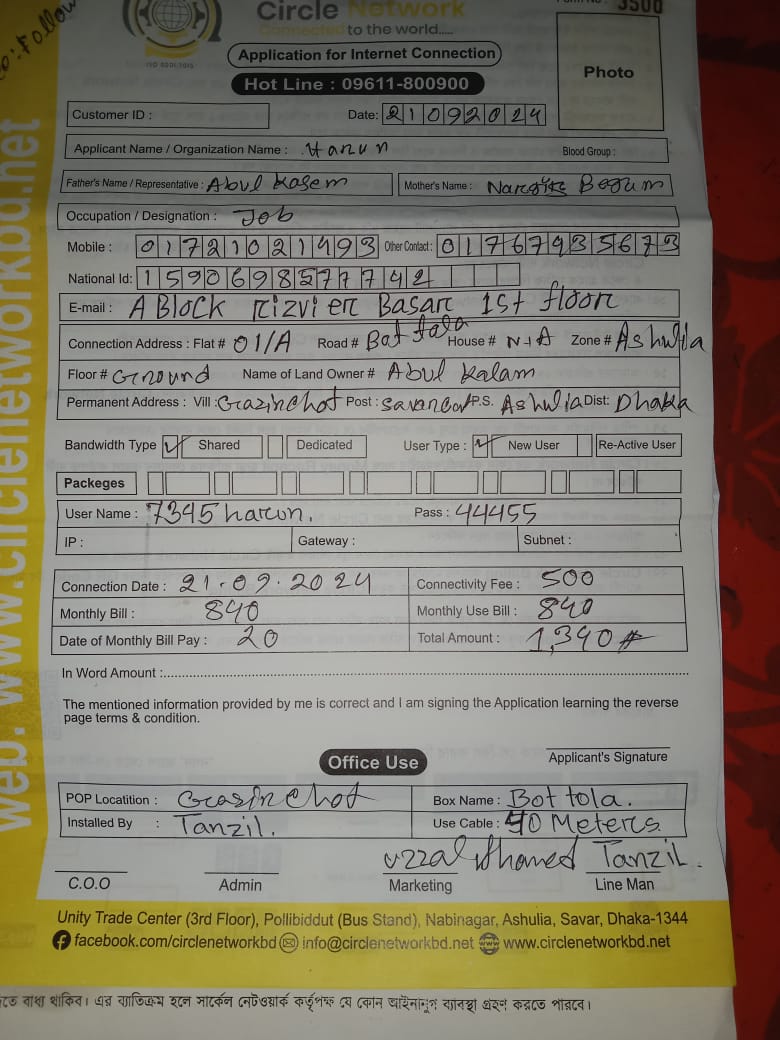 Follow
Circle Network
Connected to the world.....
ISO 9001:2015
3500
Application for Internet Connection
Hot Line : 09611-800900
Photo
Customer ID :
Date: 21092024
Applicant Name / Organization Name : Harun Blood Group :
Father's Name / Representative : Abul Kasem Mother's Name : Begum
Occupation / Designation : Job
Mobile : 01721021493 Other Contact : 01767935673
National Id: 1590698577742
E-mail : A Block Rizvi er Basar 1st floor
Connection Address : Flat # 01/A Road # Bot tola House # N-A Zone # Ashulia
Floor # Ground Name of Land Owner # Abul Kalam
Permanent Address : Vill : Gazirchot Post : P.S. Ashulia Dist: Dhaka
Bandwidth Type Shared Dedicated User Type : New User Re-Active User
Packeges
User Name : 7345harun. Pass : 44455
IP : Gateway : Subnet :
Connection Date : 21.09.2024 Connectivity Fee : 500
Monthly Bill : 840 Monthly Use Bill : 840
Date of Monthly Bill Pay : 20 Total Amount : 1,340
In Word Amount :
The mentioned information provided by me is correct and I am signing the Application learning the reverse
page terms & condition.
Applicant's Signature
Office Use
POP Locatition : Gazirchot Box Name : Bottola.
Installed By : Tanzil. Use Cable : 40 Meters.
uzzal Ahamed Tanzil.
C.O.O Admin Marketing Line Man
Unity Trade Center (3rd Floor), Pollibiddut (Bus Stand), Nabinagar, Ashulia, Savar, Dhaka-1344
facebook.com/circlenetworkbd info@circlenetworkbd.net www.circlenetworkbd.net
বাধ্য থাকিব। এর ব্যাতিক্রম হলে সার্কেল নেটওয়ার্ক কর্তৃপক্ষ যে কোন আইনানুগ ব্যাবস্থা গ্রহণ করতে পারবে।
web: www.circlenetworkbd.net